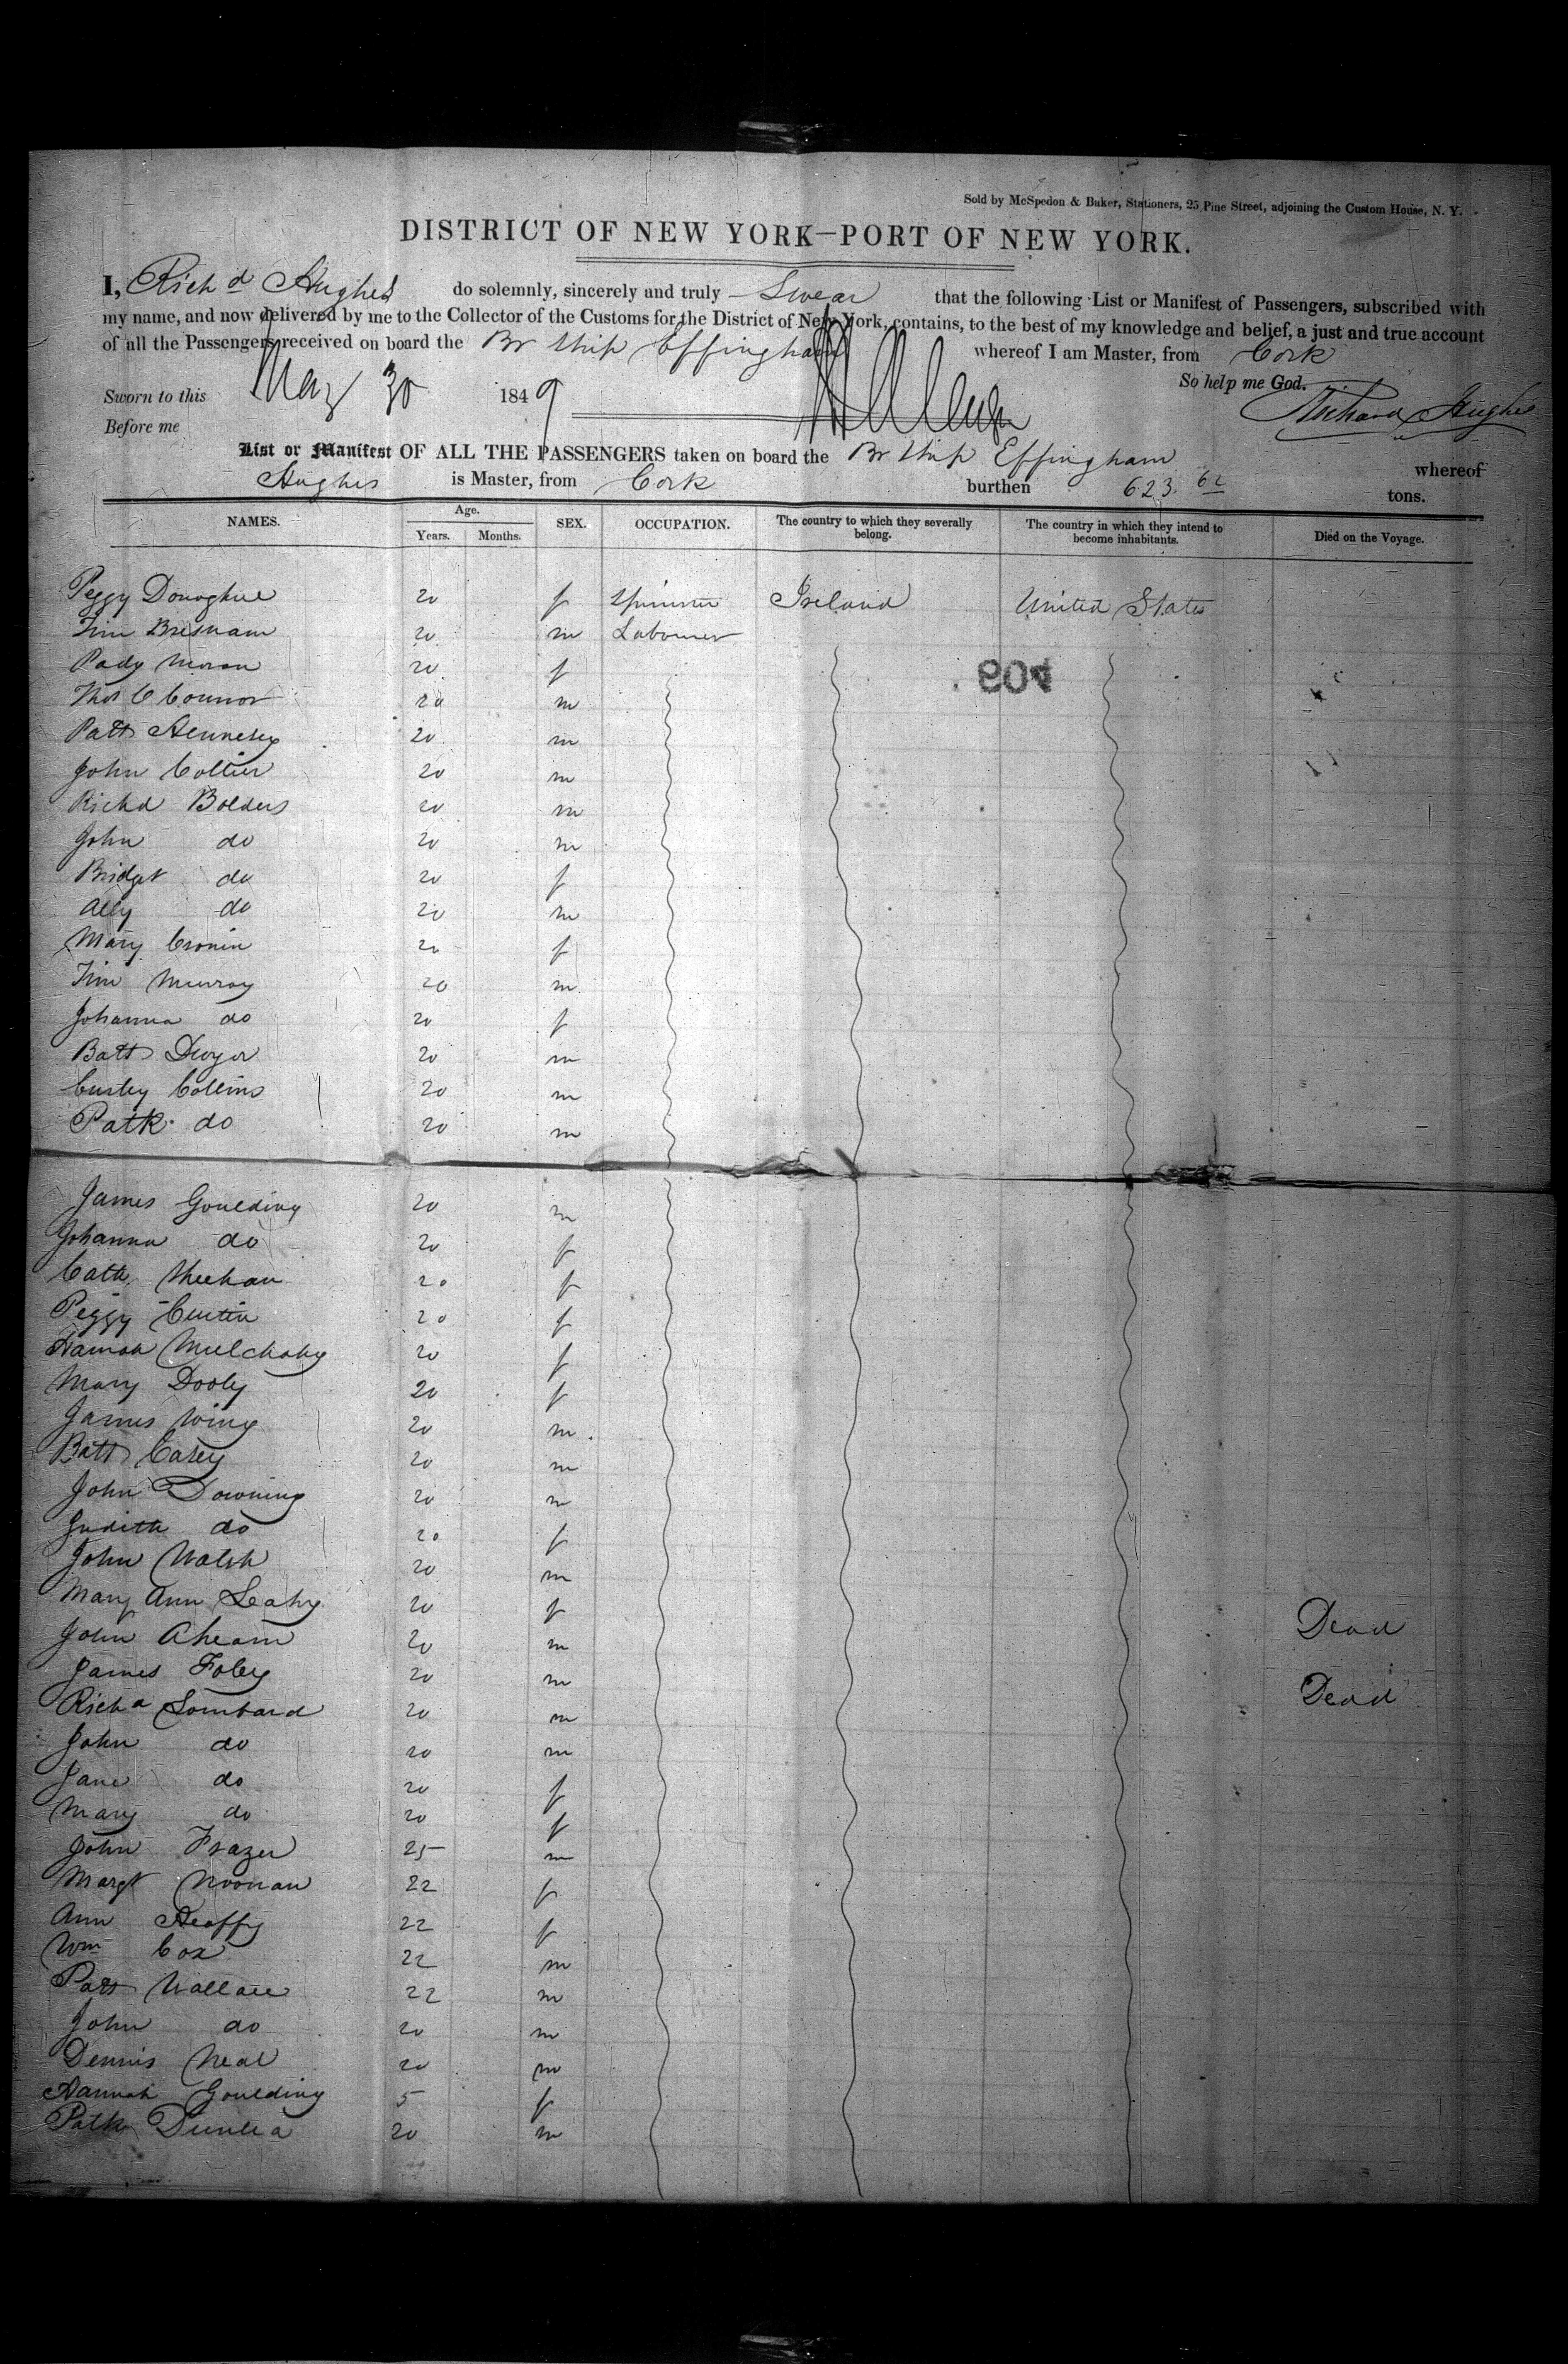 Sold by McSpedon & Baker, Stationers, 25 Pine Street, adjoining the Custom House, N. Y.
DISTRICT OF NEW YORK—PORT OF NEW YORK.
I, Richd Hughes do solemnly, sincerely and truly Swear that the following List or Manifest of Passengers, subscribed with
my name, and now delivered by me to the Collector of the Customs for the District of New York, contains, to the best of my knowledge and belief, a just and true account
of all the Passengers received on board the Br Ship Effingham whereof I am Master, from Cork
So help me God.
Sworn to this May 30 1849 Richard Hughes
Before me
List or Manifest OF ALL THE PASSENGERS taken on board the Br Ship Effingham whereof
Hughes is Master, from Cork burthen 623 62 tons.
NAMES. Age. Years. Months. SEX. OCCUPATION. The country to which they severally belong. The country in which they intend to become inhabitants. Died on the Voyage.
Peggy Donoghue 20 f Spinster Ireland United States
Tim Bresnam 20 m Labourer
Pady Moran 20 f
Thos O Connor 20 m
Patt Hennesy 20 m
John Collier 20 m
Richd Bolders 20 m
John do 20 m
Bridget do 20 f
Ally do 20 m
Mary Cronin 20 f
Tim Murray 20 m
Johanna do 20 f
Batt Dwyer 20 m
Collins 20 m
Patk do 20 m
James Goulding 20 m
Johanna do 20 f
Cath Sheehan 20 f
Peggy Curtin 20 f
Hannah Mulchahy 20 f
Mary Dooly 20 f
James Wing 20 m
Batt Casey 20 m
John Downing 20 m
Judith do 20 f
John Walsh 20 m
Mary Ann Leahy 20 f Dead
John Ahearn 20 m
James Foley 20 m Dead
Richd Lombard 20 m
John do 20 m
Jane do 20 f
Mary do 20 f
John Frazer 25 m
Margt Noonan 22 f
Ann Heaffy 22 f
Wm Cox 22 m
Wallace 22 m
John do 20 m
Dennis Neal 20 m
Hannah Goulding 5 f
Patk Dunlea 20 m